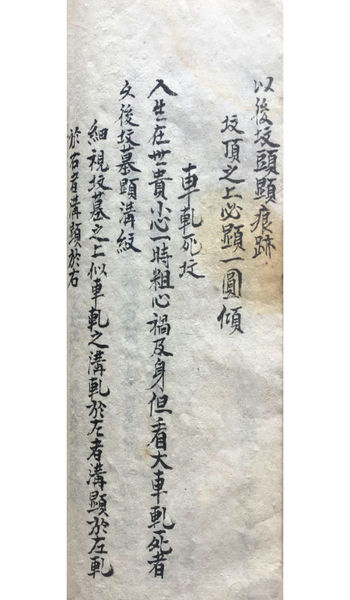 以後坟頭顯痕跡
坟頂之上必顯一圓傾
車軋死坟
人生在世貴小心一時粗心禍及身但看大車軋死者
久後坟墓顯溝紋
細視坟墓之上似車軋之溝軋於左者溝顯於左軋
於右者溝顯於右